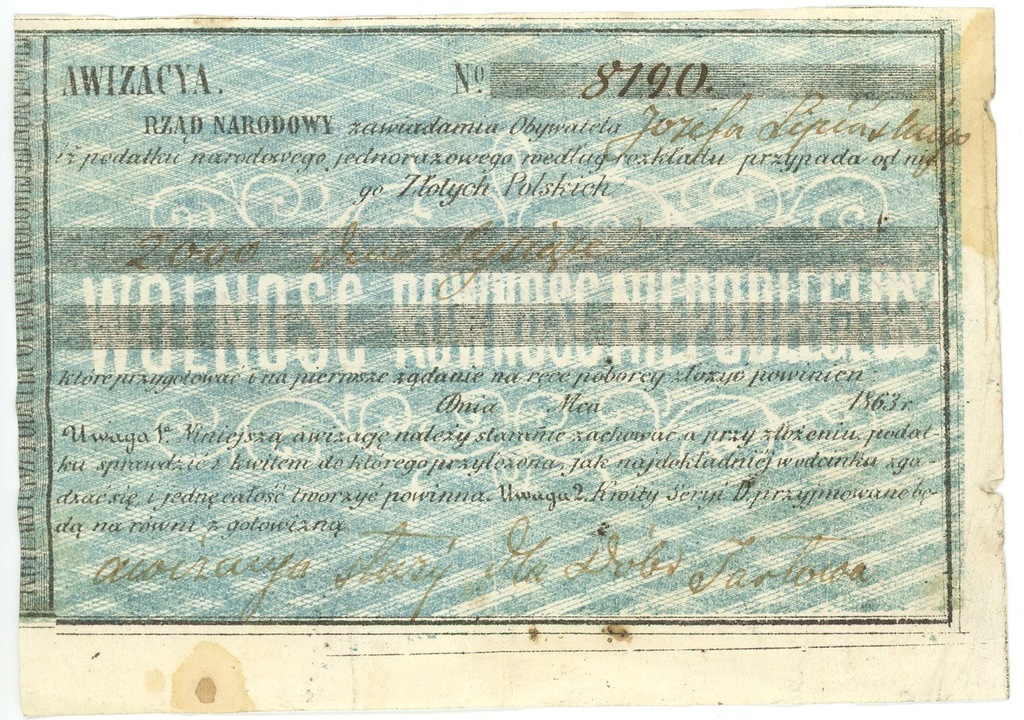 AWIZACYA. No 8190.
RZĄD NARODOWY zawiadamia Obywatela Józefa Lipińskiego
iż podatku narodowego jednorazowego według rozkładu przypada od nie
go Złotych Polskich
2000 dwa tysiące
WOLNOŚĆ RÓWNOŚĆ NIEPODLEGŁOŚĆ
które przygotować i na pierwsze żądanie na ręce poborcy złożyć powinien
Dnia Mca 1863 r.
Uwaga 1a. Niniejszą awizacyę należy starannie zachować a przy złożeniu podat-
ku sprawdzić z kwitem do którego przyłożona, jak najdokładniéj w odcinku zga-
dzać się i jednę całość tworzyć powinna. Uwaga 2. Kwity Seryi D. przyjmowane bę-
dą na równi z gotowizną
awizacya służy dla Dóbr Tarłowa